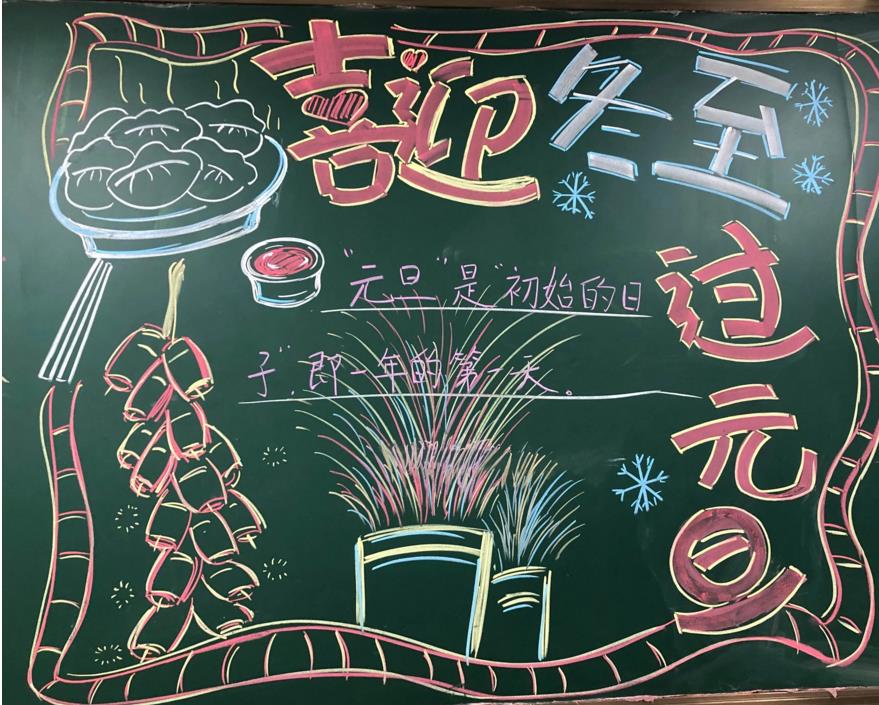 喜迎冬至
过元旦
"元旦"是"初始的日
子",即一年的第一天。